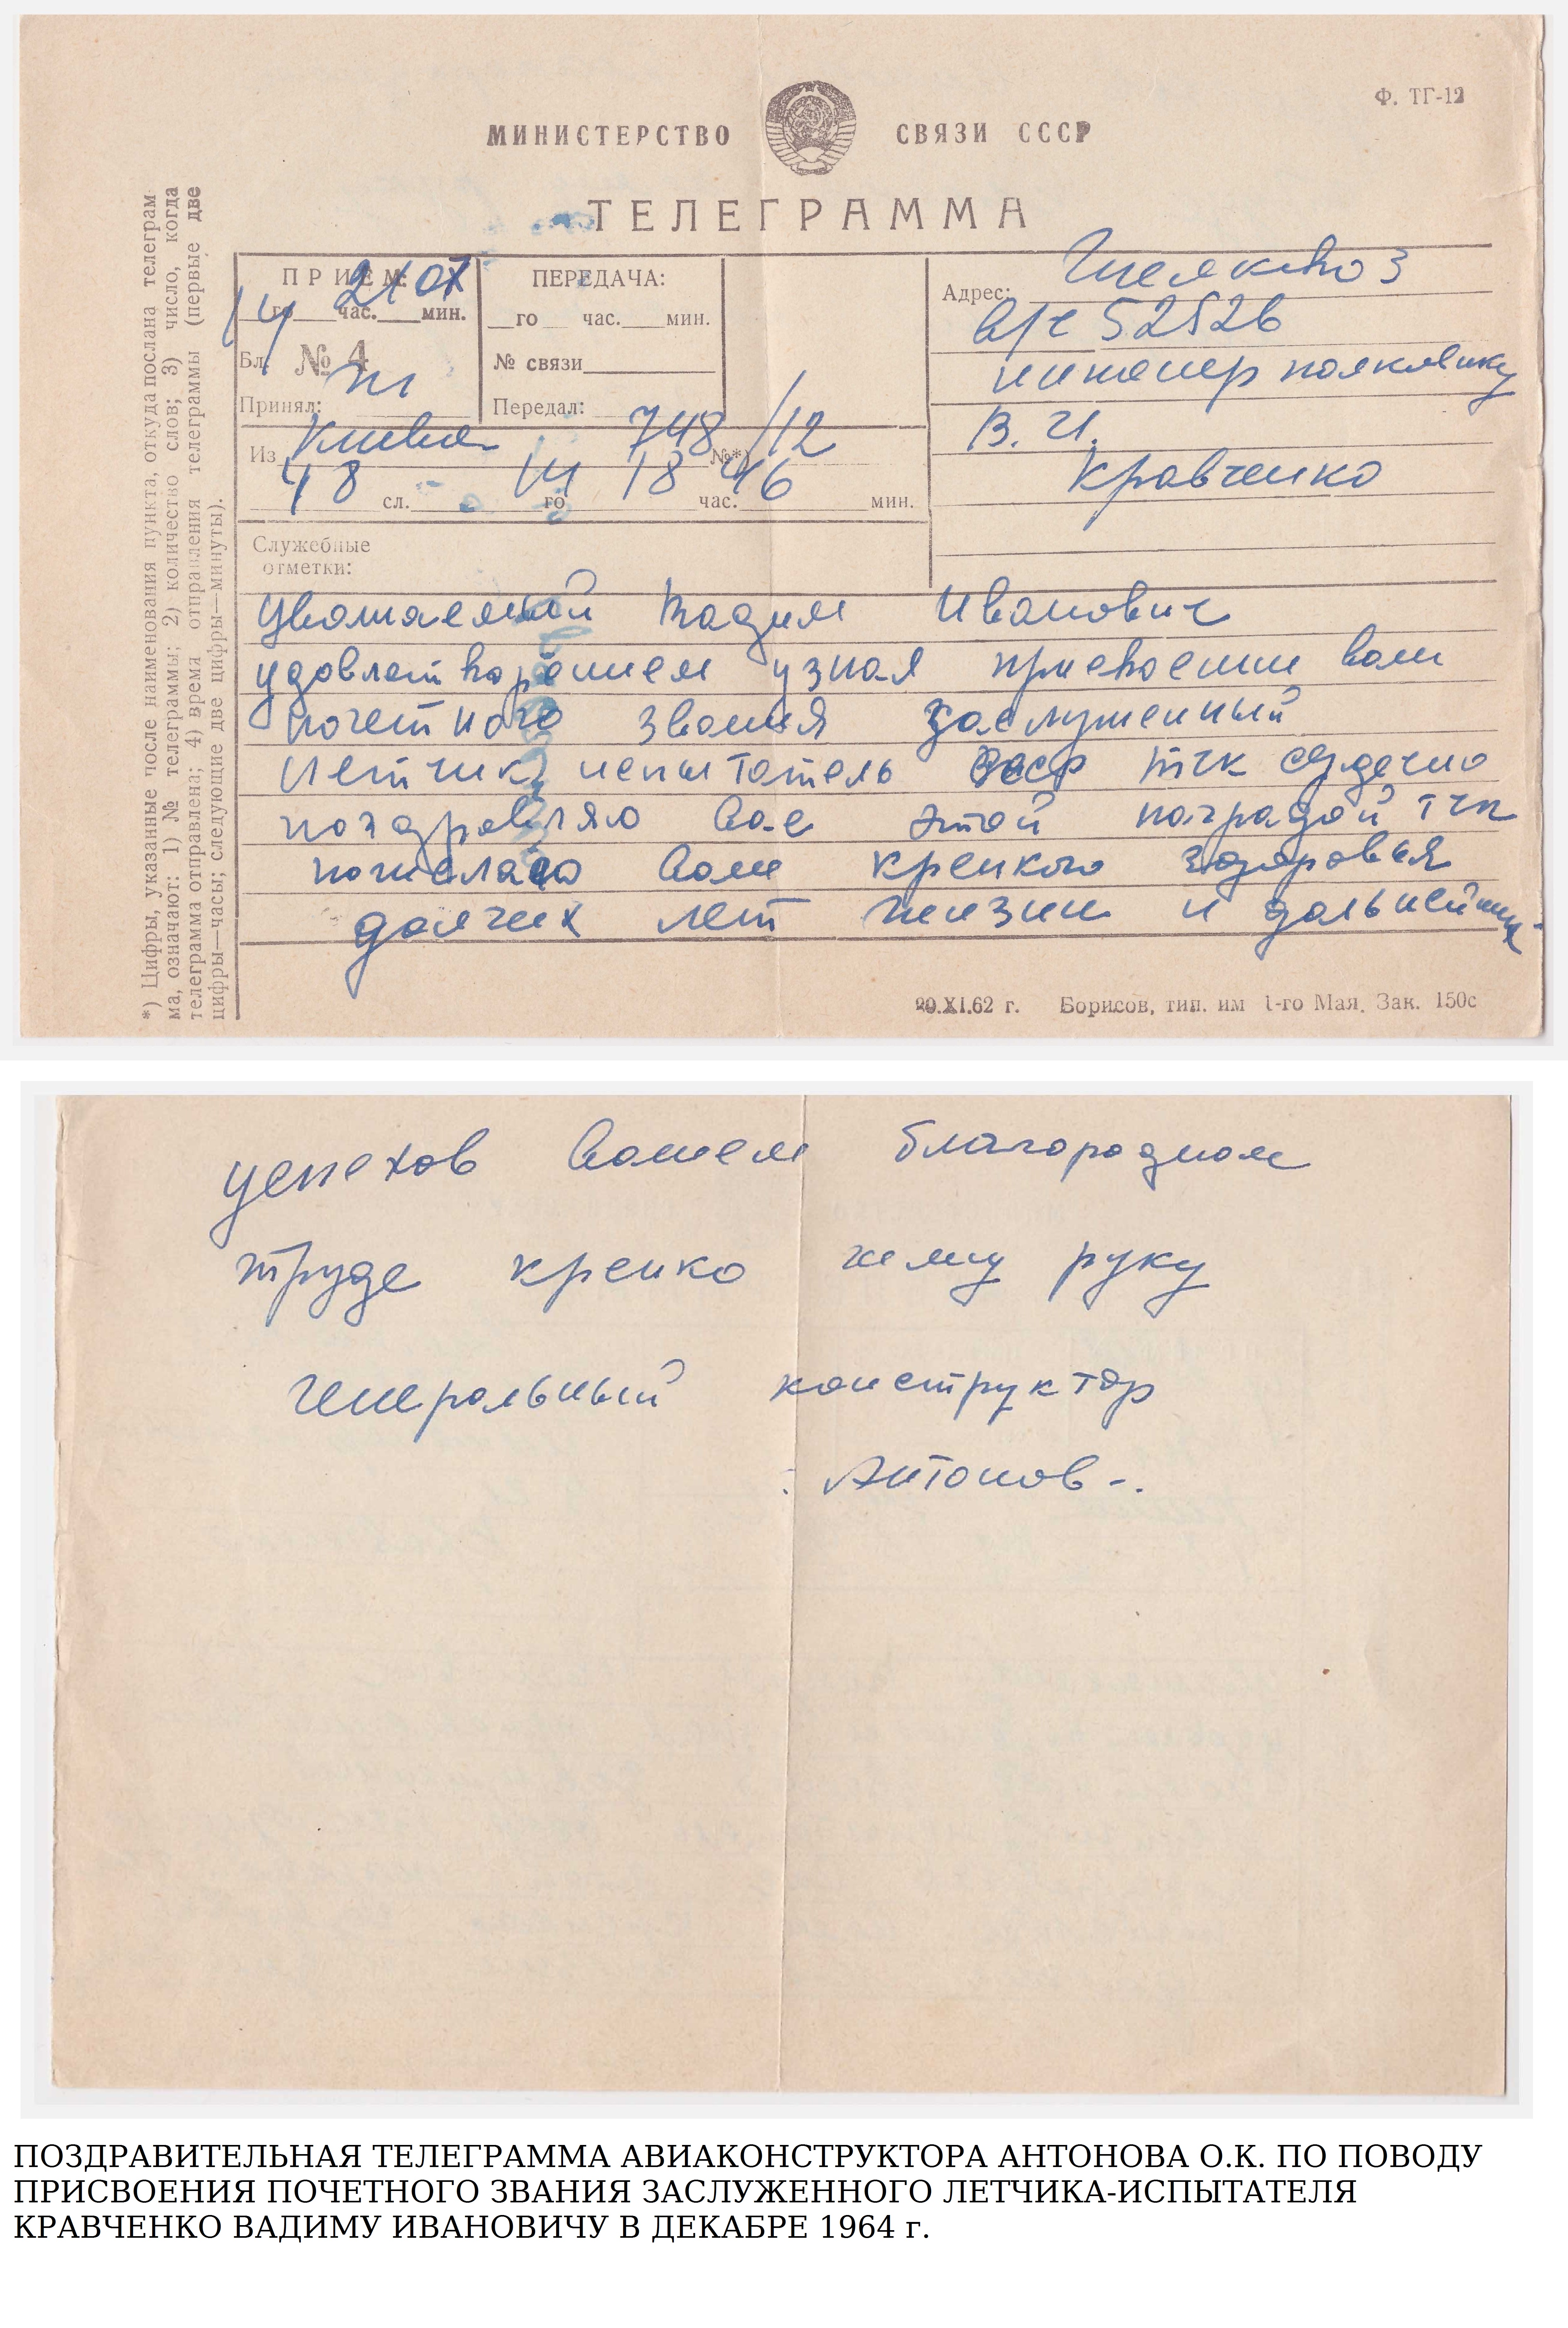 Ф. ТГ-12
МИНИСТЕРСТВО СВЯЗИ СССР
ТЕЛЕГРАММА
ПРИЕМ:
14го 21 час. 07 мин.
Бл. № 4
Принял:
ПЕРЕДАЧА:
го час. мин.
№ связи
Передал:
Из Киева 748/12 №*)
48 сл. 14 го 18 час. 46 мин.
Служебные
отметки:
Адрес: Щелково 3
в/ч 52526
инженер полковнику
В. И.
Кравченко
Уважаемый Вадим Иванович
удовлетворением узнал присвоении вам
почетного звания заслуженный
летчик испытатель ссср тчк сердечно
поздравляю вас этой наградой тчк
пожелаю вам крепкого здоровья
долгих лет жизни и дальнейших
*) Цифры, указанные после наименования пункта, откуда послана телеграм
ма, означают: 1) № телеграммы; 2) количество слов; 3) число, когда
телеграмма отправлена; 4) время отправления телеграммы (первые две
цифры—часы; следующие две цифры—минуты).
20.XI.62 г. Борисов, тип. им 1-го Мая. Зак. 150с
успехов вашем благородном
труде крепко жму руку
генеральный конструктор
Антонов -.
ПОЗДРАВИТЕЛЬНАЯ ТЕЛЕГРАММА АВИАКОНСТРУКТОРА АНТОНОВА О.К. ПО ПОВОДУ
ПРИСВОЕНИЯ ПОЧЕТНОГО ЗВАНИЯ ЗАСЛУЖЕННОГО ЛЕТЧИКА-ИСПЫТАТЕЛЯ
КРАВЧЕНКО ВАДИМУ ИВАНОВИЧУ В ДЕКАБРЕ 1964 г.